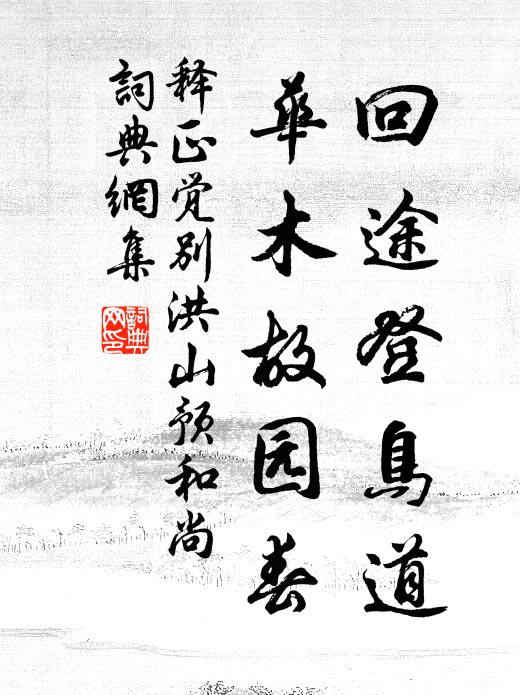 回途登鳥道
華木故园春
释正覚别洪山预和尚
詞典網集
詞典网印